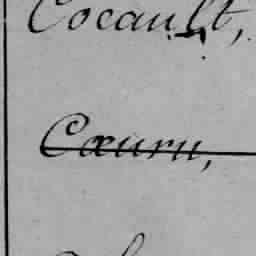 Cocault,
Cœuru,